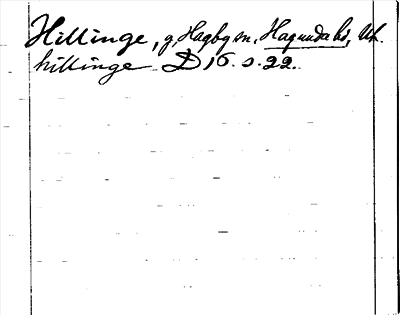 Hillinge, g, Hagby sn, Hagunda hd, Upl.
hillinge D 16 s. 22.